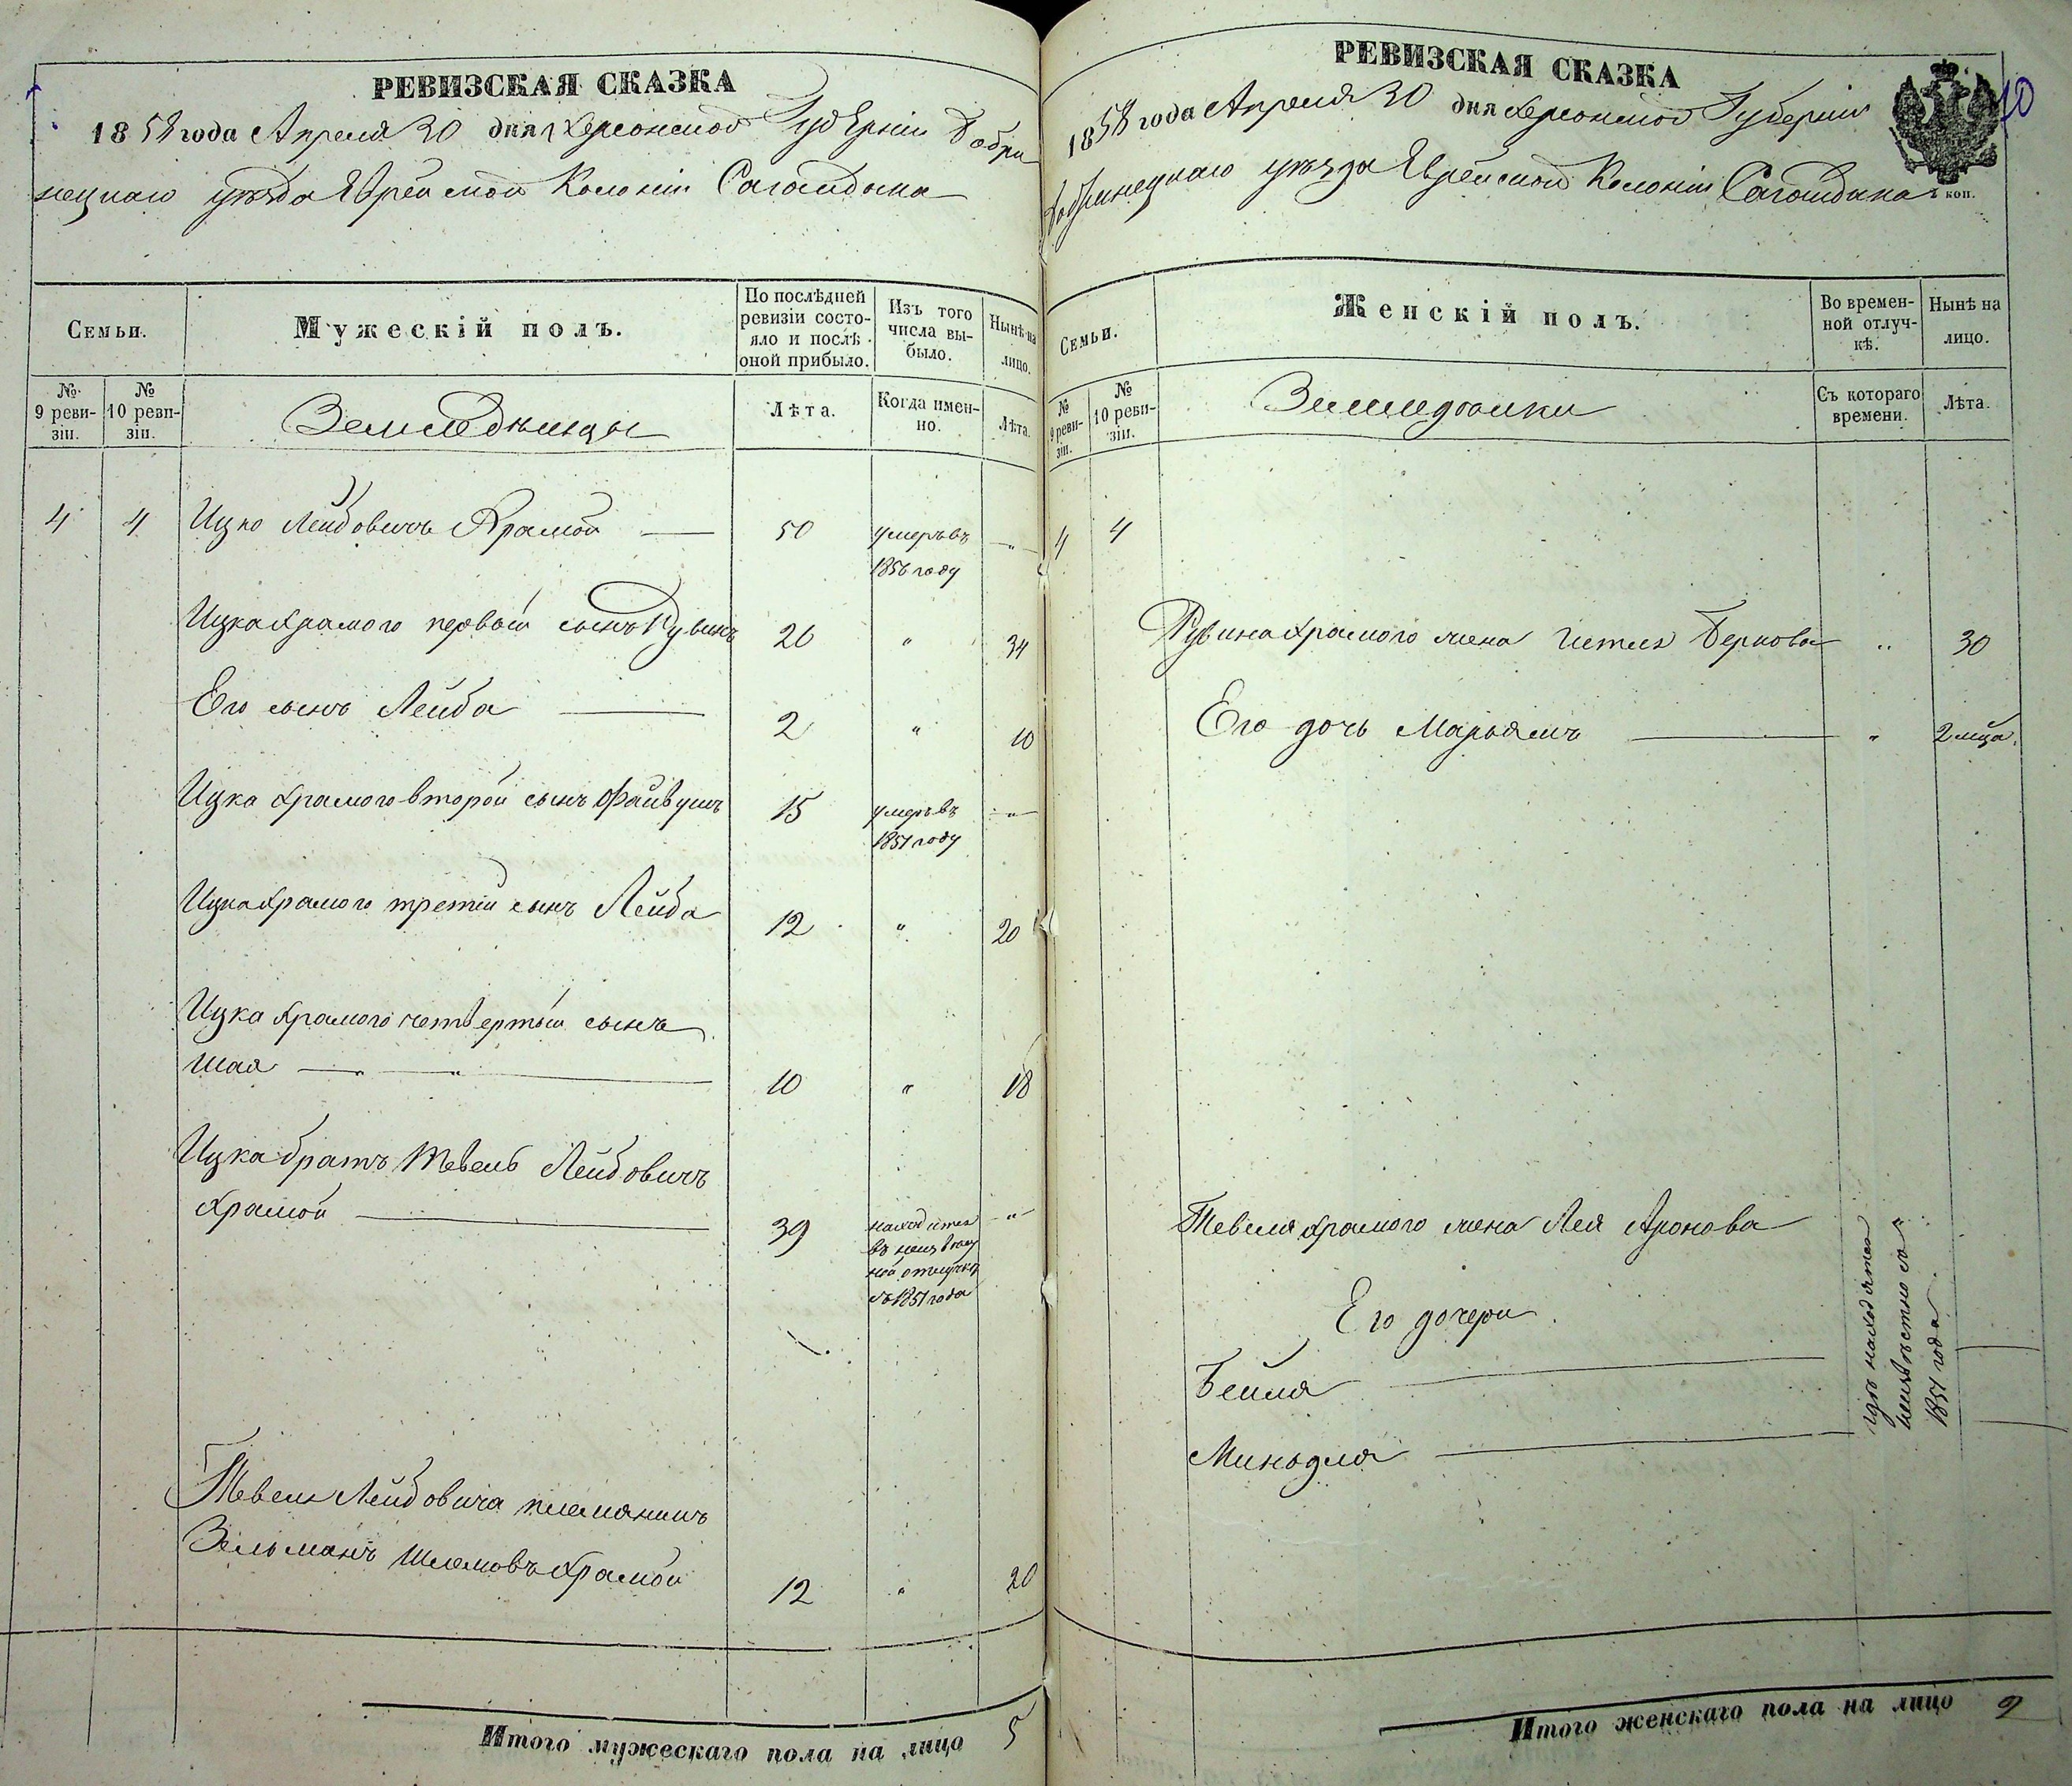 РЕВИЗСКАЯ СКАЗКА
1858 года Апреля 30 дня Херсонской Губерніи Бобри
нецкаго уѣзда Еврейской Колоніи Сагайдака
Семьи.
Мужескій полъ.
По послѣдней ревизіи состояло и послѣ оной прибыло.
Изъ того числа выбыло.
Нынѣ на лицо.
№ 9 ревизіи.
№ 10 ревизіи.
Земледѣльцы
Лѣта.
Когда именно.
Лѣта.
4 4 Ицко Лейбовичъ Храмой — 50 умеръ въ — " —
1856 году
Ицка Храмого первый сынъ Рувинъ 26 " 34
Его сынъ Лейба — 2 " 10
Ицка Храмого второй сынъ Файвушъ 15 умеръ въ — " —
1851 году
Ицка Храмого третій сынъ Лейба 12 " 20
Ицка Храмого четвертый сынъ
Шая — " — " — 10 " 18
Ицка братъ Тевель Лейбовичъ
Храмой — 39 находится — " —
въ неизвѣст
ной отлучкѣ
съ 1851 года
Тевеля Лейбовича племянникъ
Зельманъ Шлемовъ Храмой 12 " 20
Итого мужескаго пола на лицо 5
РЕВИЗСКАЯ СКАЗКА
10
1858 года Апреля 30 дня Херсонской Губерніи
Бобринецкаго уѣзда Еврейской Колоніи Сагайдака
коп.
Семьи.
Женскій полъ.
Во временной отлучкѣ.
Нынѣ на лицо.
№ 9 ревизіи.
№ 10 ревизіи.
Съ котораго времени.
Лѣта.
4 4
Рувина Храмого жена Беркова " 30
Его дочь Марьямъ — " 2 мца.
Тевеля Храмого жена Лея Аронова
Его дочери
Бейля —
Миньдля —
гдѣ находятся
неизвѣстно съ
1851 года
Итого женскаго пола на лицо 2